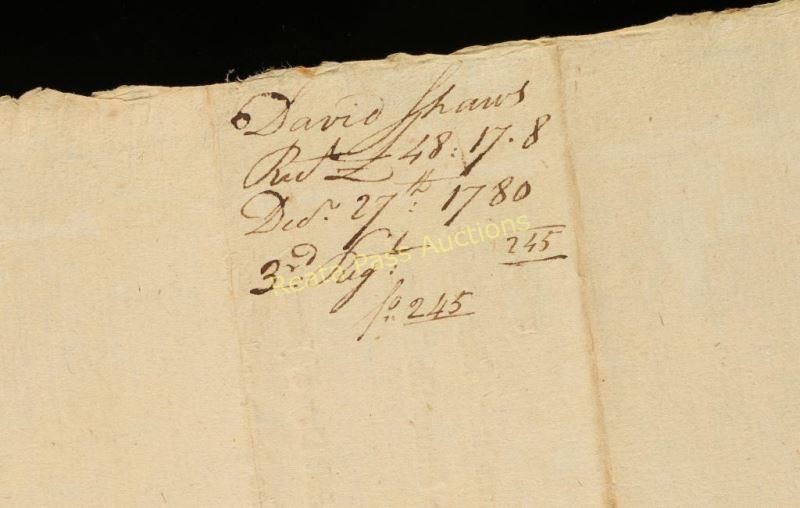 David Shaws
Rect £ 48:17.8
Decr. 27th: 1780
3rd Regt:
245
fo 245
Reata Pass Auctions